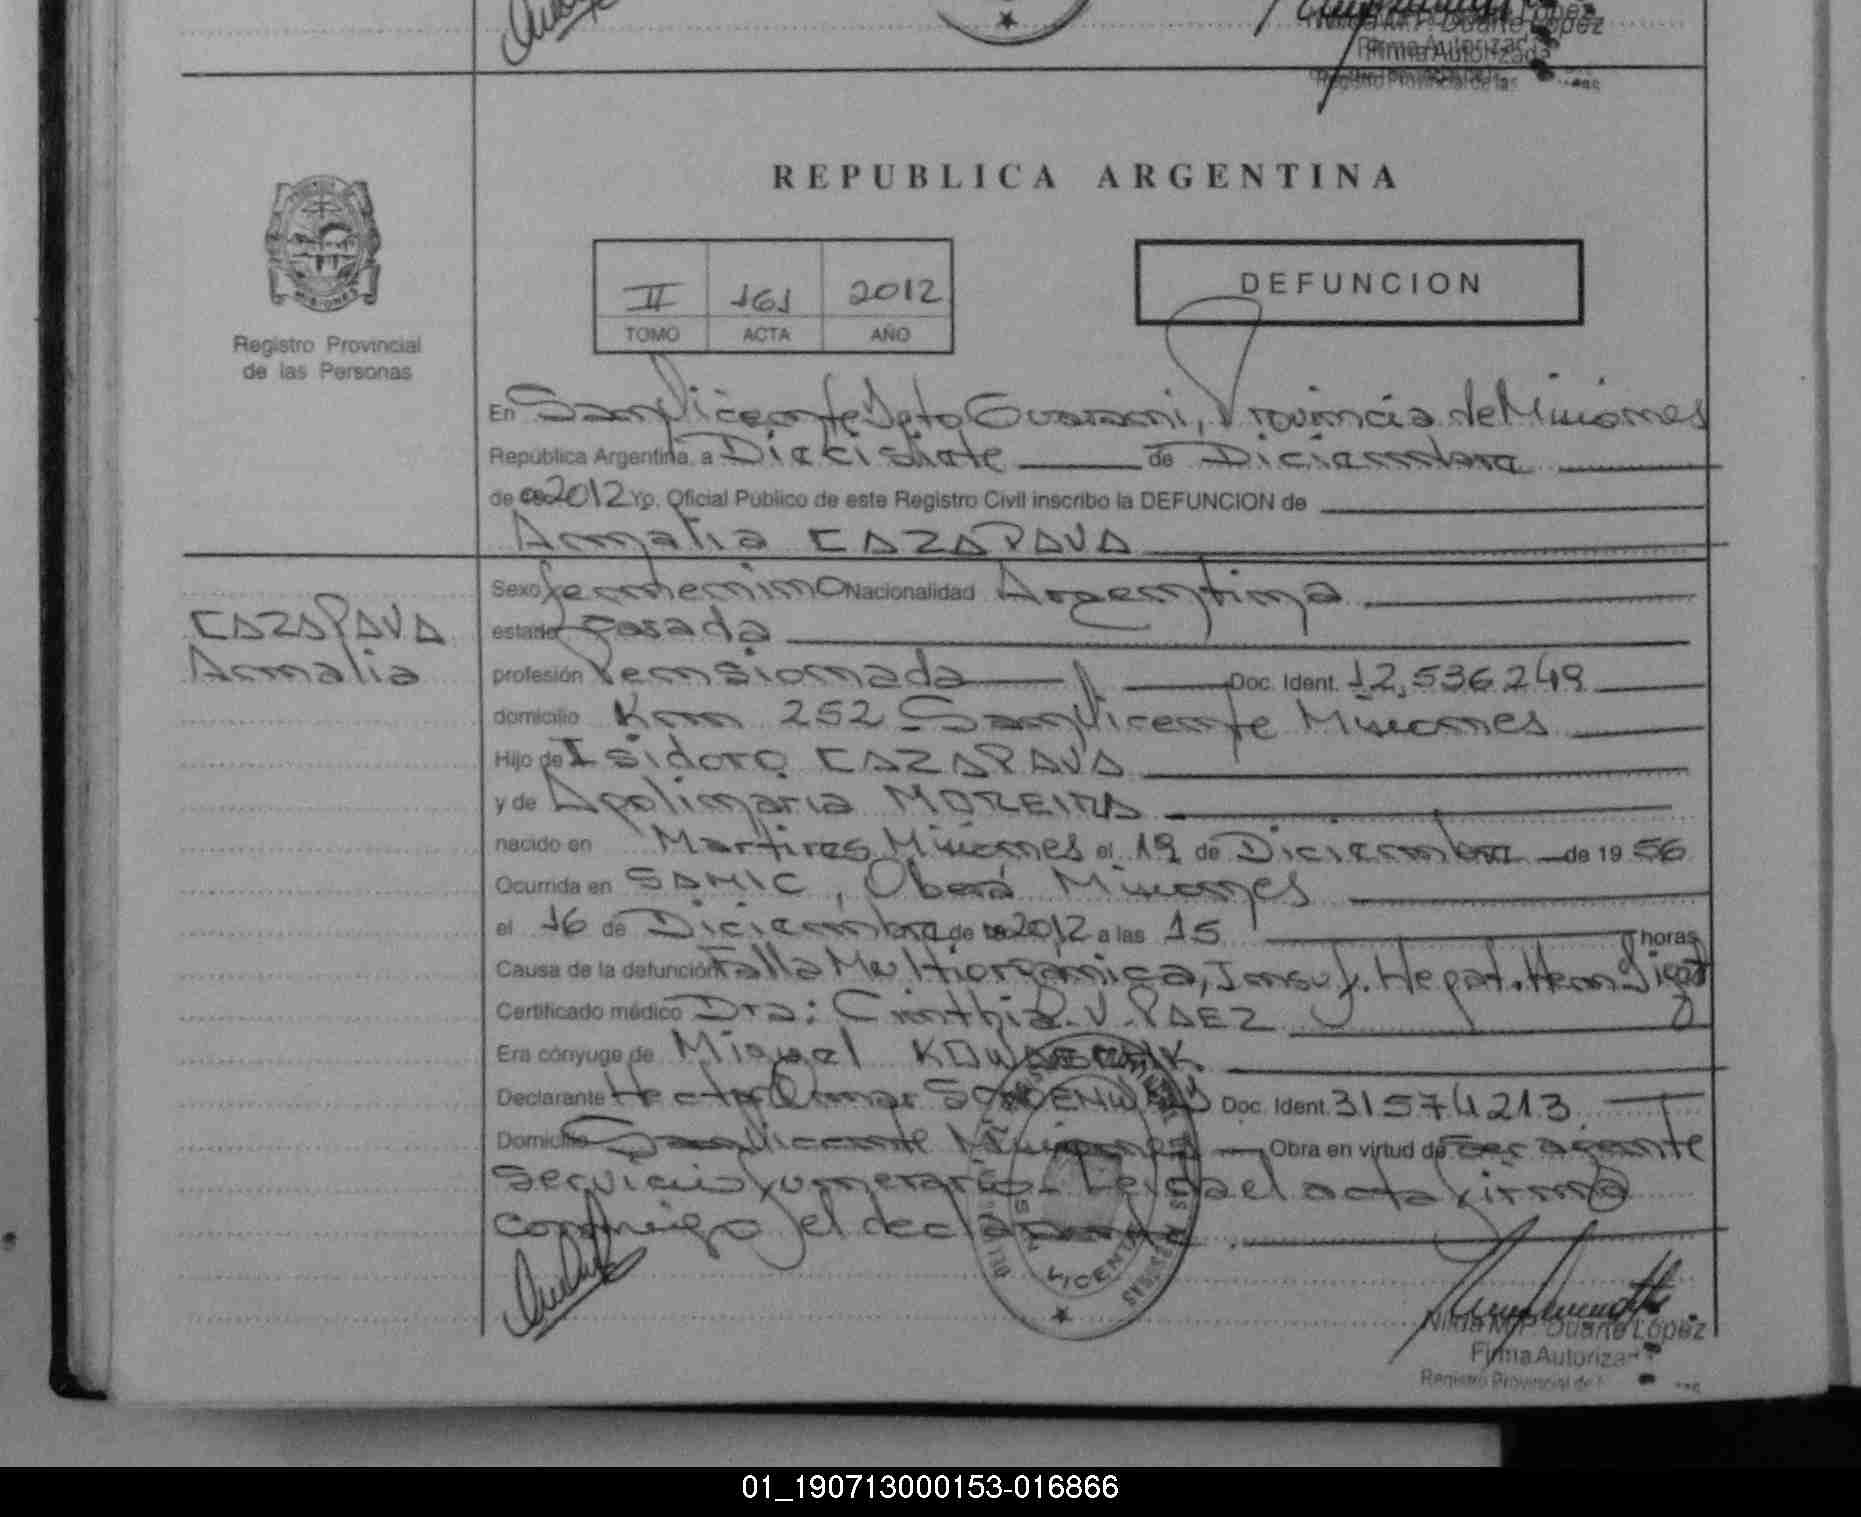 REPUBLICA ARGENTINA
MISIONES
Registro Provincial
de las Personas
II 161 2012
TOMO ACTA AÑO
DEFUNCION
En San Vicente Dpto Guarani, Provincia de Misiones
República Argentina, a Diecisiete de Diciembre
de 2012 Yo, Oficial Público de este Registro Civil inscribo la DEFUNCION de
Amalia CAZAPAVA
CAZAPAVA
Amalia
Sexo femenino Nacionalidad Argentina
estado Casada
profesión Pensionada Doc. Ident. 12,536249
domicilio Km 252 San Vicente Misiones
Hijo de Isidoro CAZAPAVA
y de Apolinaria MOREIRA
nacido en Martires Misiones el 19 de Diciembre de 19 56
Ocurrida en SAMIC, Oberá Misiones
el 16 de Diciembre de 2012 a las 15 horas
Causa de la defunción Falla Multiorgánica, Insuf. Hepat. Hem Digest
Certificado médico Dra: Cinthia. V. PAEZ
Era cónyuge de Miguel
Declarante Hector Omar Doc. Ident. 31574213
Domicilio San Vicente Misiones Obra en virtud de ser agente
servicio funerario. Leída el acta firma
conmigo el declarante.
VICENTE
Nilda M.P. Duarte López
Firma Autorizada
Registro Provincial de las
01_190713000153-016866